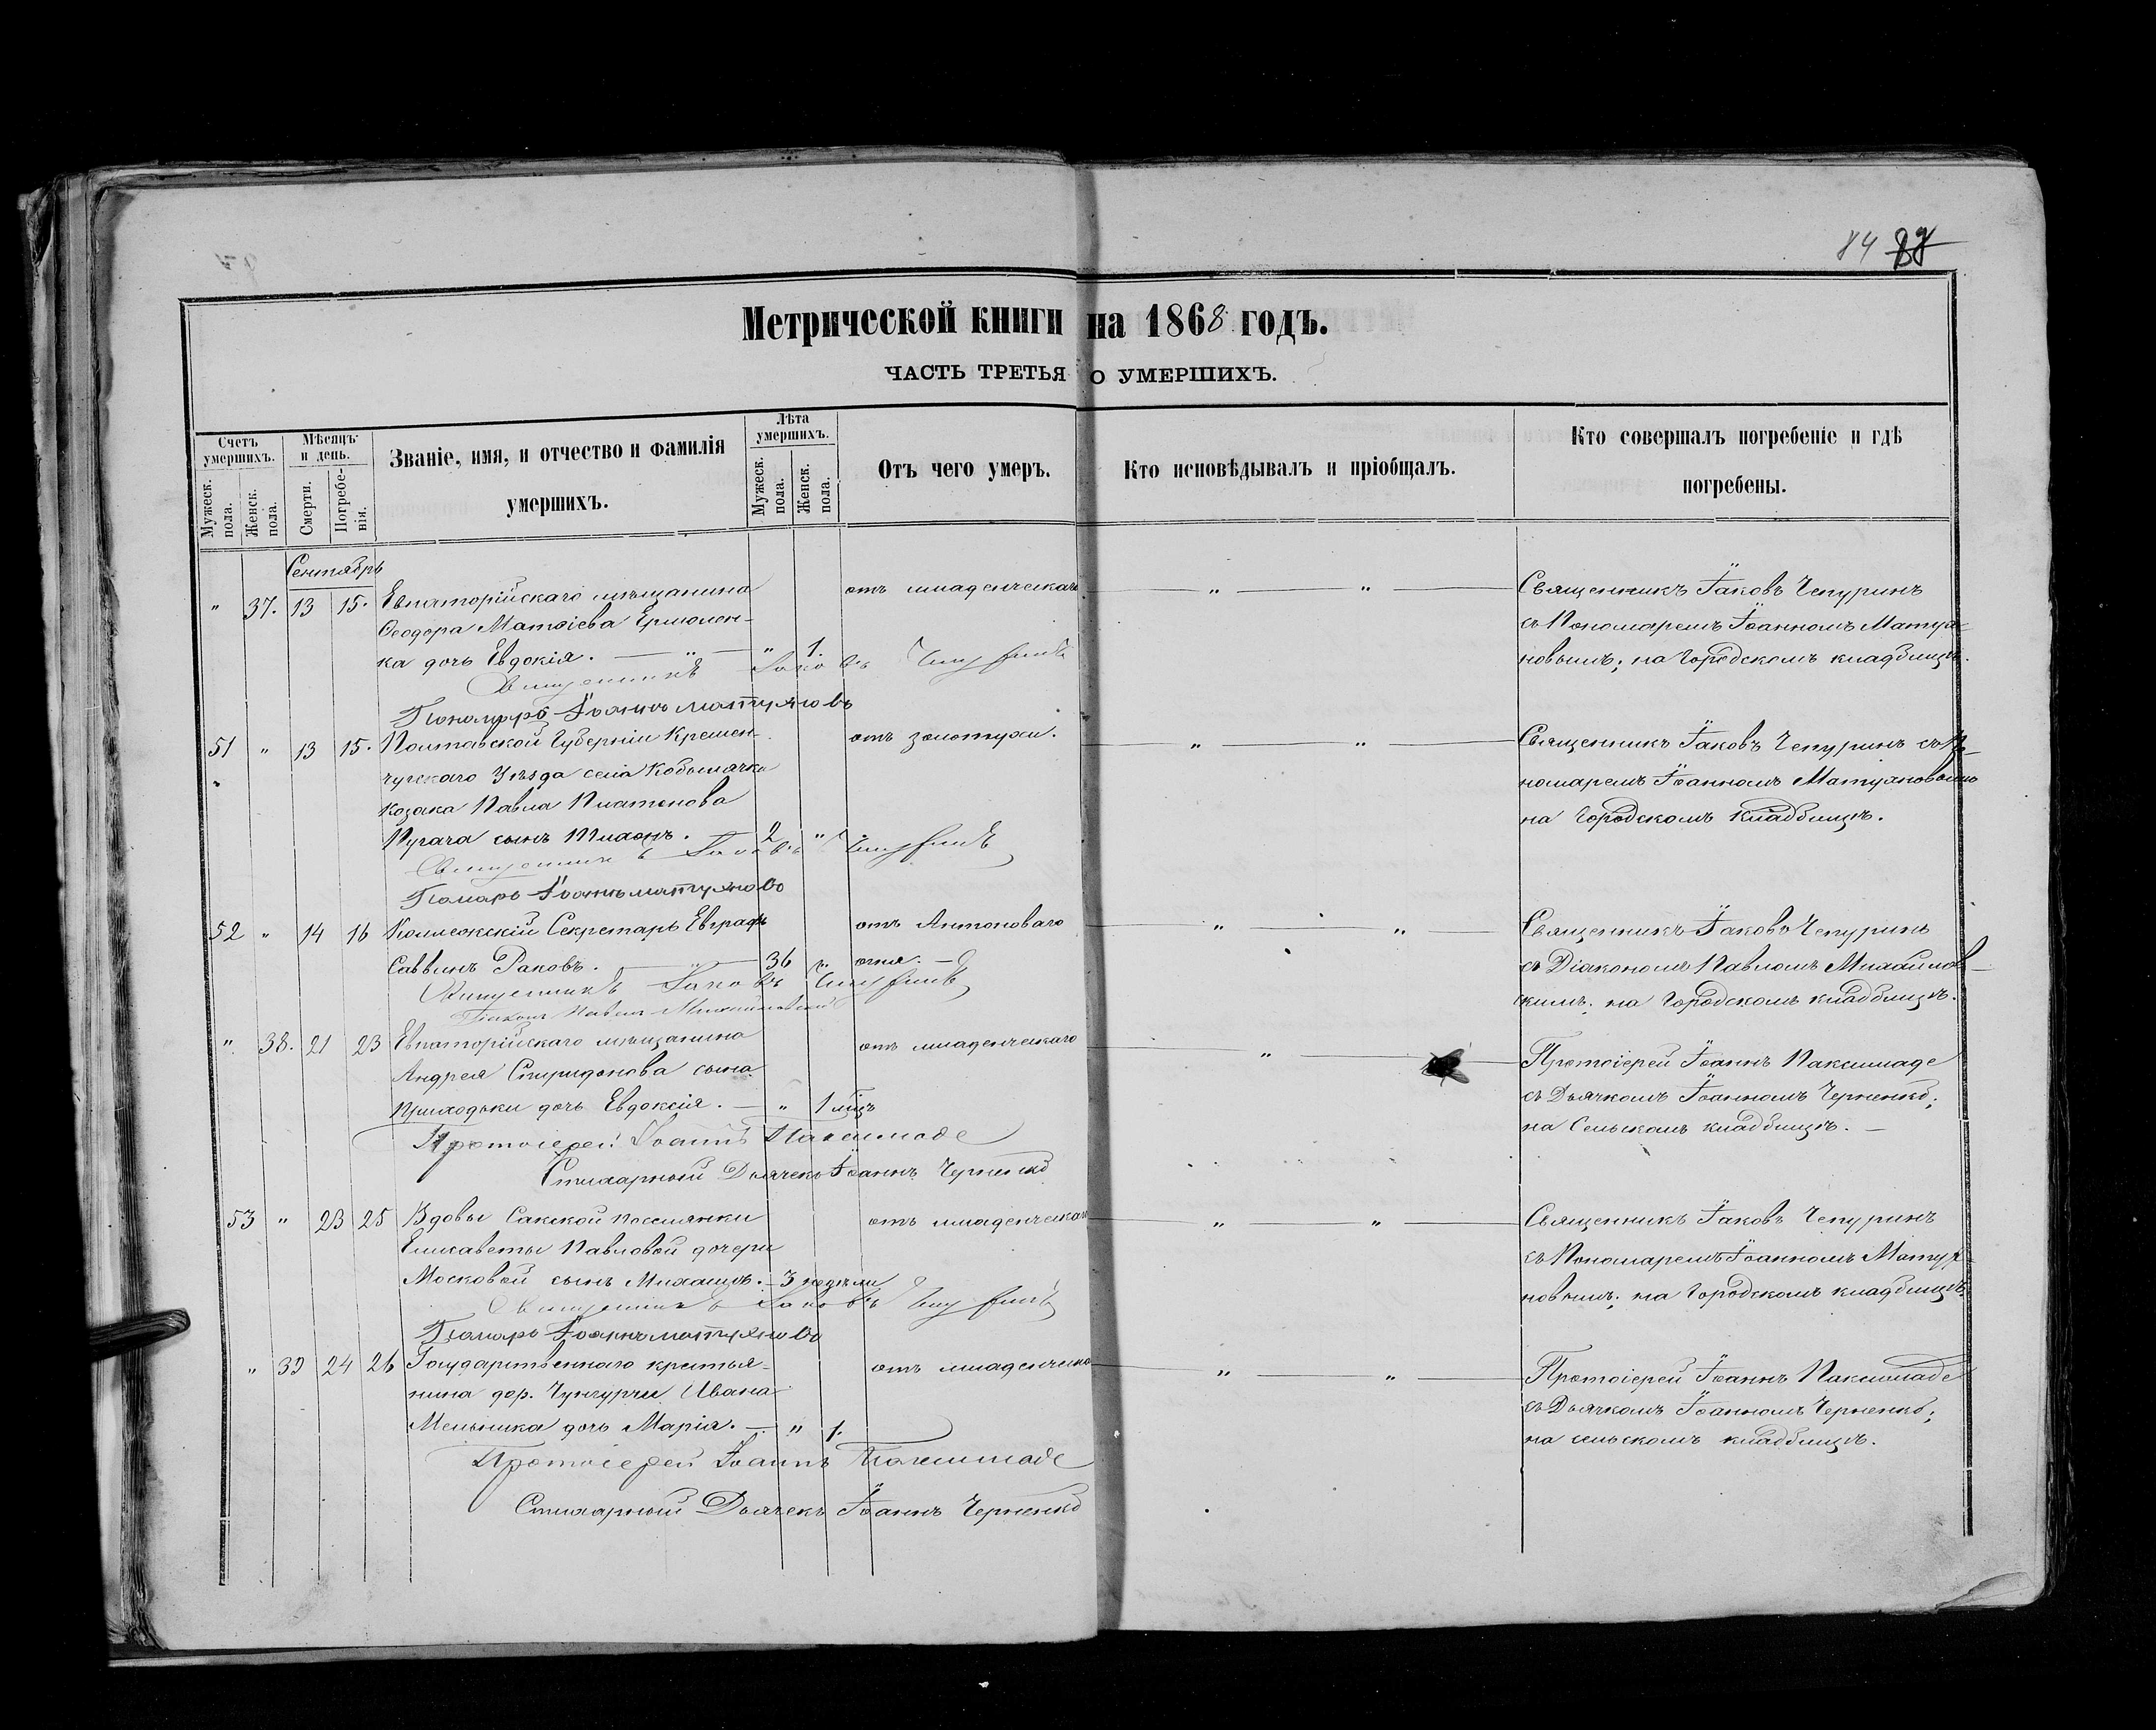 84 88
Метрической книги на 1868 годъ.
ЧАСТЬ ТРЕТЬЯ О УМЕРШИХЪ.
Счетъ умершихъ.
Мужеск. пола.
Женск. пола.
Мѣсяцъ и день.
Смерти.
Погребенія.
Званіе, имя, и отчество и фамилія
умершихъ.
Лѣта умершихъ.
Мужеск. пола.
Женск. пола.
Отъ чего умеръ.
Кто исповѣдывалъ и пріобщалъ.
Кто совершалъ погребеніе и гдѣ
погребены.
Сентябрь
" 37. 13 15. Евпаторійскаго мѣщанина отъ младенческаго — " — " — Священникъ Іаковъ Чепуринъ
Ѳеодора Матѳіева Ермолен- съ Пономаремъ Іоанномъ Матуя-
ка дочь Евдокія. — " — " 1. новымъ; на Городскомъ кладбищѣ.
Священникъ Іаковъ Чепуринъ
Пономарь Іоаннъ Матуяновъ
51 " 13 15. Полтавской Губерніи Кремен- отъ золотухи. — " — " — Священникъ Іаковъ Чепуринъ съ По-
чугскаго Уѣзда села Кобылячка номаремъ Іоанномъ Матуяновымъ
козака Павла Платонова на Городскомъ кладбищѣ.
Пугача сынъ Тихонъ. — 2 "
Священникъ Іаковъ Чепуринъ
Помарь Іоаннъ Матуяновъ
52 " 14 16 Коллежскій Секретарь Евграфъ отъ Антоноваго — " — " — Священникъ Іаковъ Чепуринъ
Саввинъ Раковъ. — " — 36 " огня. — съ Діакономъ Павломъ Михайлов-
скимъ; на Городскомъ кладбищѣ.
Священникъ Іаковъ Чепуринъ
Діаконъ Павелъ Михайловскій
" 38. 21 23 Евпаторійскаго мѣщанина отъ младенческаго — " — Протоіерей Іоаннъ Паксимаде
Андрея Спиридонова сына съ Дьячкомъ Іоанномъ Черненко;
Приходьки дочь Евдоксія. — " 1 мѣц на Сельскомъ кладбищѣ. —
Протоіерей Іоаннъ Паксимаде
Стихарный Дьячекъ Іоаннъ Черненко
53 " 23 25 Вдовы Сакской поселянки отъ младенческаго — " — " — Священникъ Іаковъ Чепуринъ
Елисаветы Павловой дочери съ Пономаремъ Іоанномъ Матуя-
Московой сынъ Михаилъ. — 3 недѣли новымъ; на Городскомъ кладбищѣ.
Священникъ Іаковъ Чепуринъ
Помарь Іоаннъ Матуяновъ
" 39 24 26 Государственнаго крестья- отъ младенческа — " — " — Протоіерей Іоаннъ Паксимаде
нина дер. Чунгурчи Ивана съ Дьячкомъ Іоанномъ Черненко;
Мельника дочь Марія. — " 1. на сельскомъ кладбищѣ.
Протоіерей Іоаннъ Паксимаде
Стихарный Дьячекъ Іоаннъ Черненко